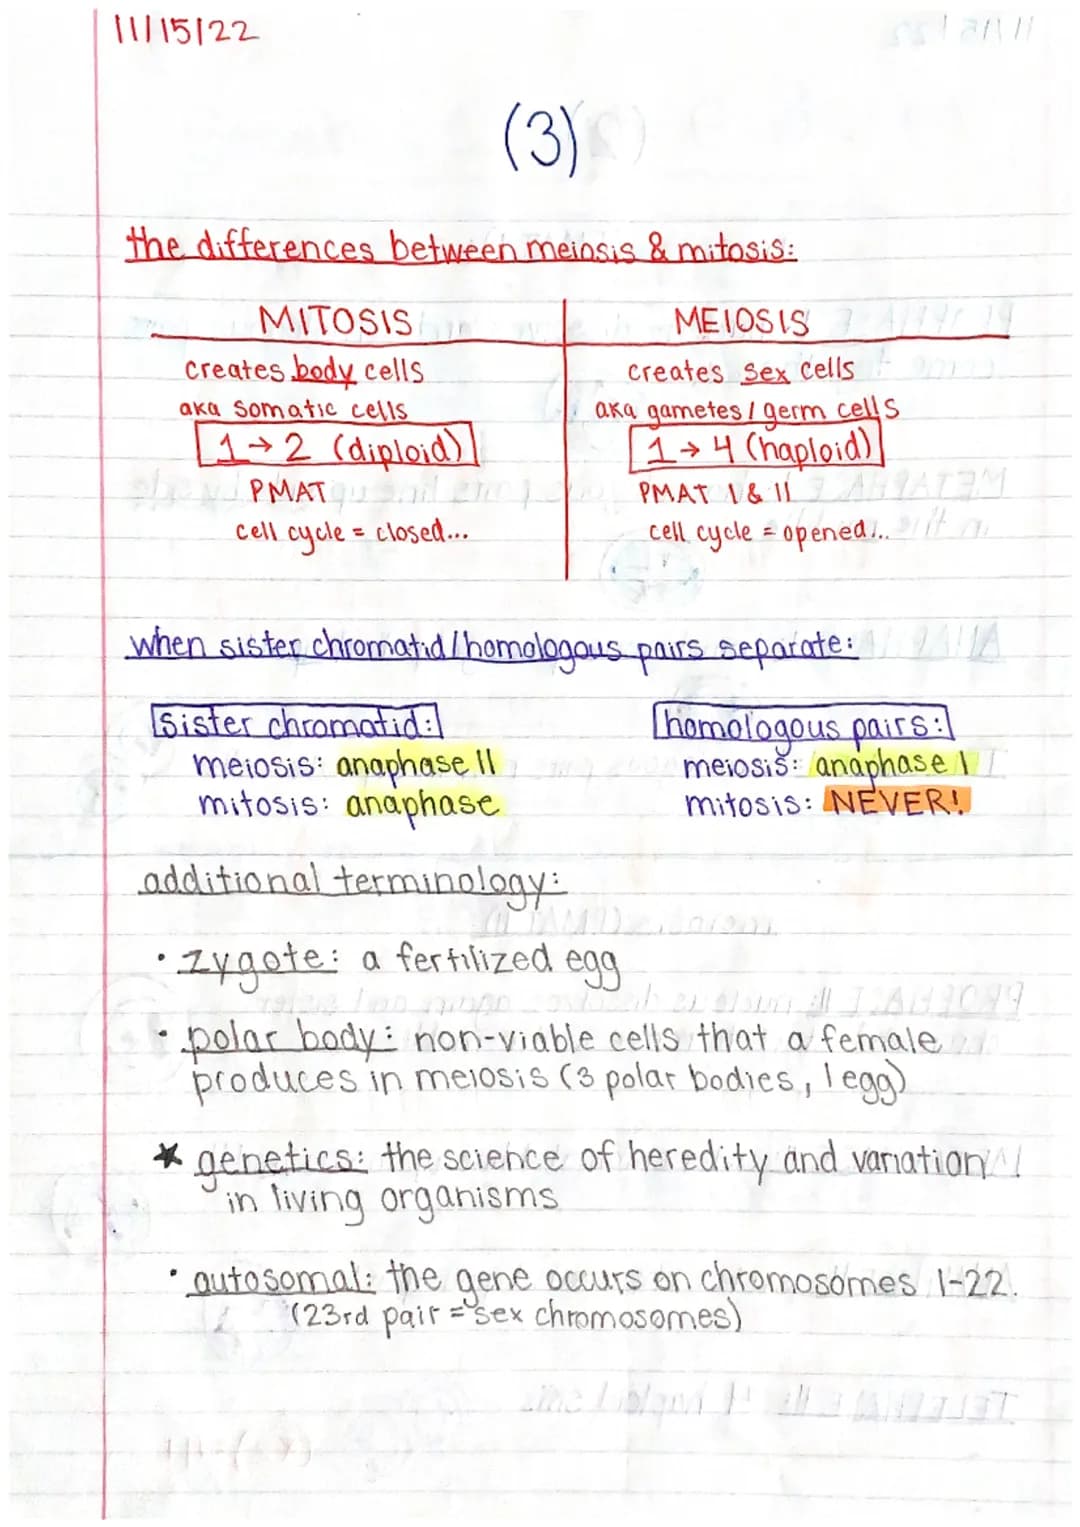 11/15/22
(3)
the differences between meiosis & mitosis:
MITOSIS
creates body cells
aka somatic cells
1→2 (diploid)
PMAT
cell cycle = closed...
MEIOSIS
creates sex cells
aka gametes / germ cells
1→4 (haploid)
PMAT I & II
cell cycle = opened...
when sister chromatid/homologous pairs separate:
sister chromatid:
meiosis: anaphase II
mitosis: anaphase
homologous pairs:
meiosis: anaphase I
mitosis: NEVER!
additional terminology:
• zygote: a fertilized egg
• polar body: non-viable cells that a female
produces in meiosis (3 polar bodies, 1 egg)
★ genetics: the science of heredity and variation
in living organisms
• autosomal: the gene occurs on chromosomes 1-22.
(23rd pair = sex chromosomes)